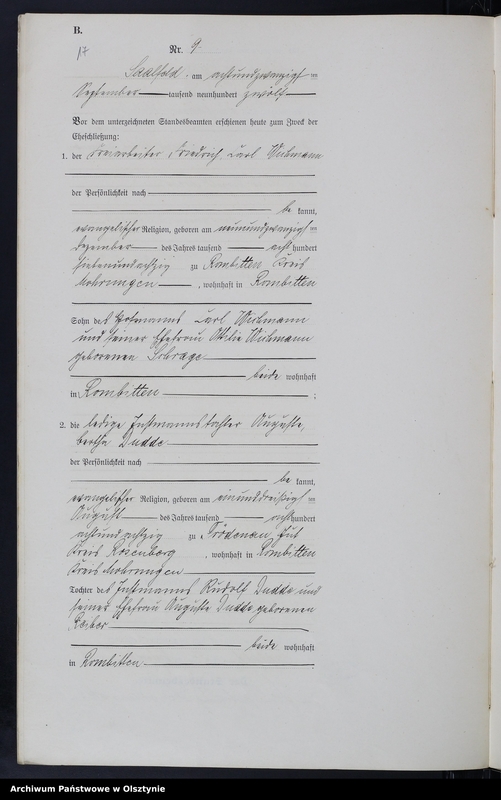 B.
17
Nr. 9.
Saalfeld am achtundzwanzigsten
September tausend neunhundert zwölf
Vor dem unterzeichneten Standesbeamten erschienen heute zum Zweck der
Eheschließung:
1. der Freiarbeiter Friedrich Carl Wichmann
der Persönlichkeit nach
be kannt,
evangelischer Religion, geboren am neunundzwanzigsten
Dezember des Jahres tausend acht hundert
siebenundachtzig zu Rombitten Kreis
Mohrungen, wohnhaft in Rombitten
Sohn des Carl Wichmann
und seiner Ehefrau Ottilie Wichmann
geborenen Schrage
beide wohnhaft
in Rombitten;
2. die ledige Instmannstochter Auguste,
Bertha Dudde
der Persönlichkeit nach
be kannt,
evangelischer Religion, geboren am einunddreißigsten
August des Jahres tausend acht hundert
achtundachtzig zu Gut
Kreis Rosenberg, wohnhaft in Rombitten
Kreis Mohrungen
Tochter des Instmanns Rudolf Dudde und
seiner Ehefrau Auguste Dudde geborenen
beide wohnhaft
in Rombitten
Archiwum Państwowe w Olsztynie